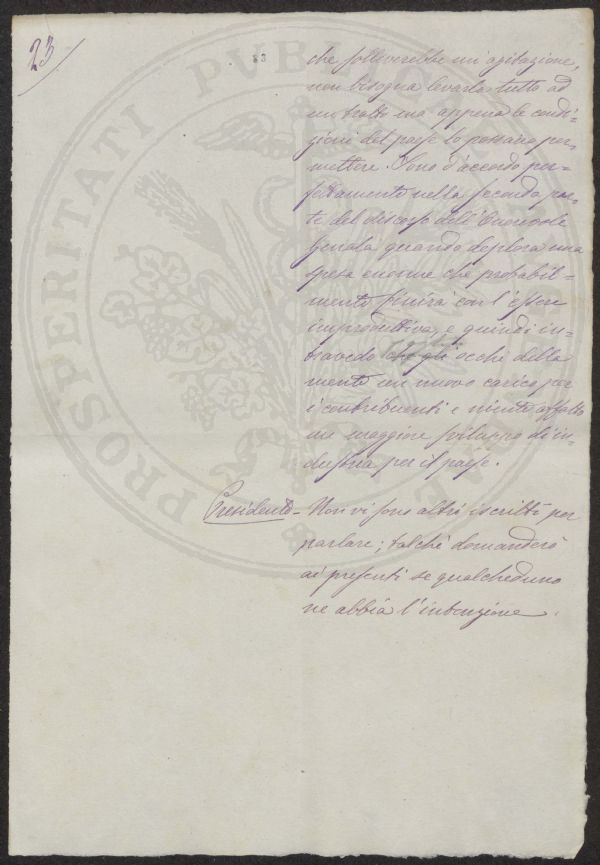 23
53
che solleverebbe un'agitazione,
non bisogna levarla tutto ad
un tratto ma appena le condi=
zioni del paese lo possano per=
mettere. Sono d'accordo per=
fettamente nella seconda par=
te del discorso dell'Onorevole
Genala quando deplora una
spesa enorme che probabil=
mente finirà con l'essere
improduttiva, e quindi in=
travedo che gli occhi della
mente un nuovo carico per
i contribuenti e niente affatto
un maggiore sviluppo di in=
dustria per il paese.
Presidente - Non vi sono altri iscritti per
parlare; talchè domanderò
ai presenti se qualcheduno
ne abbia l'intenzione.
PROSPERITATI PUBLICAE